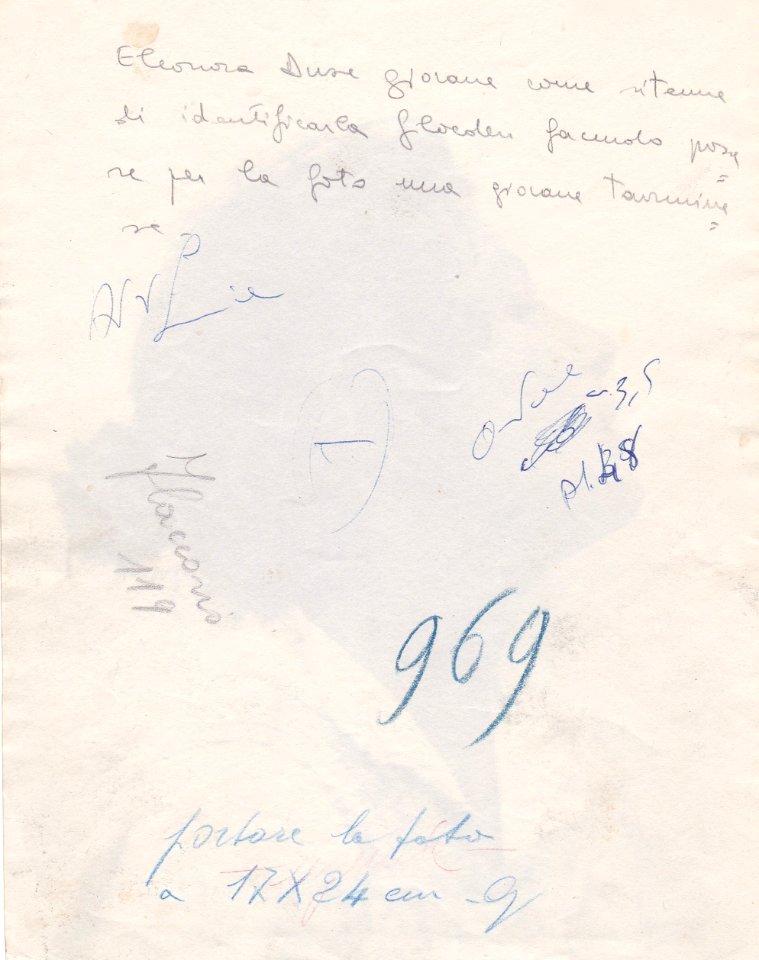 Eleonora Duse giovane come ritenne
di identificarla Gloeden facendo posa
re per la foto una giovane Taormine
se
ovale
3,5
8
Flaccovio
119
969
portare la foto
a 17X24 cm